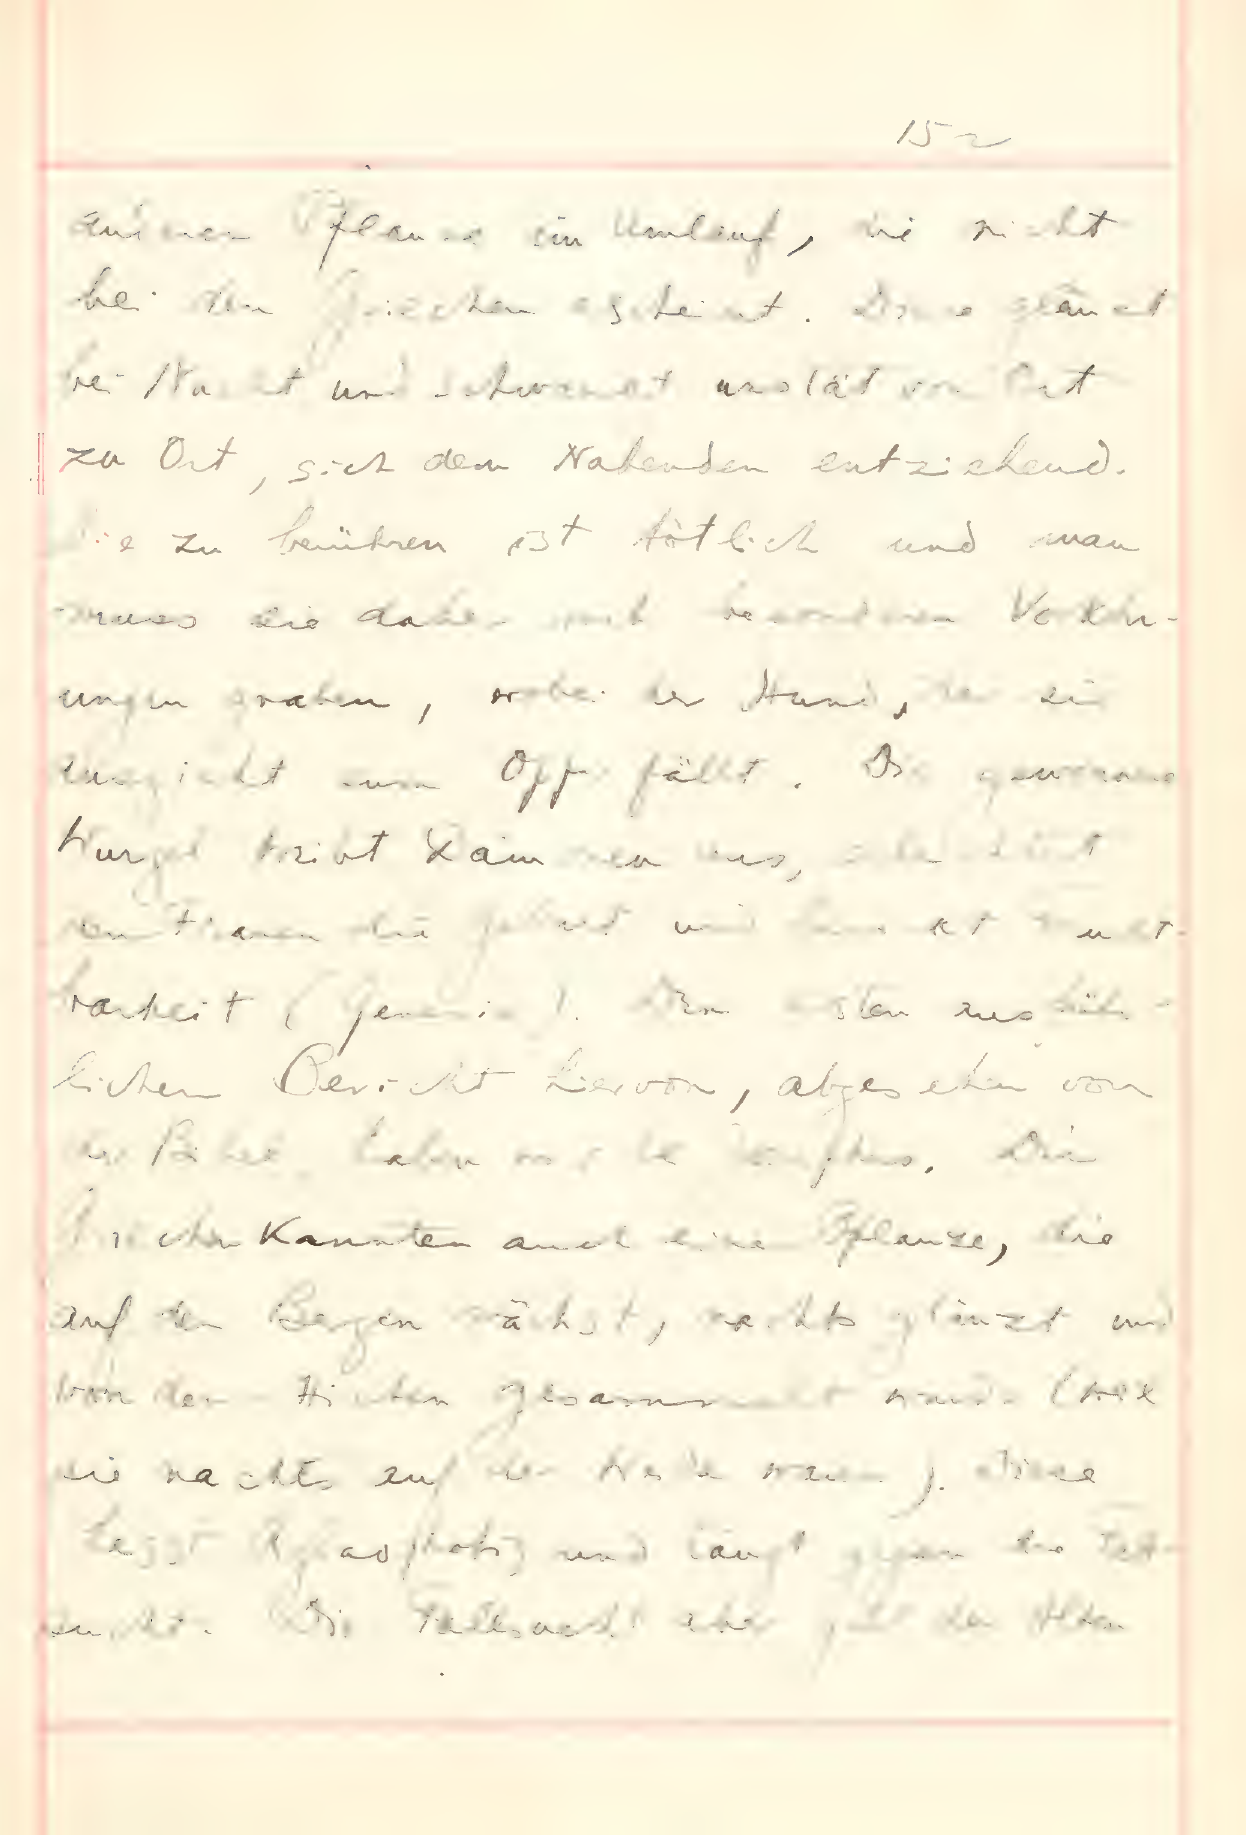 152
anderen Pflanze im Umlauf, die nicht
bei den Griechen erscheint. Diese glänzt
bei Nacht und schwankt unstät von Ort
zu Ort, sich dem Nahenden entziehend.
Sie zu berühren ist tötlich und man
muss sie daher mit besonderen Vorkehr-
ungen graben, wobei der Hund, der sie
auszieht zum Opfer fällt. Die gewonnene
Wurzel treibt Dämonen aus, erleichtert
den Frauen die Geburt und bewirkt Frucht-
barkeit (Genesis). Den ersten ausführ-
lichen Bericht hiervon, abgesehen von
der Bibel, haben wir bei Josephus. Die
Griechen kannten auch eine Pflanze, die
auf den Bergen wächst, nachts glänzt und
von den Hirten gesammelt wurde (weil
sie nachts auf der Weide waren). Diese
heisst Aglaophotis und taugt gegen die Fall-
sucht. Die Fallsucht aber galt den Alten